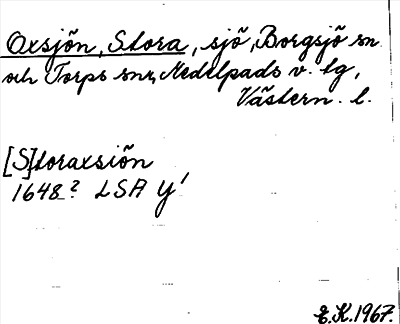 Oxsjön, Stora, sjö, Borgsjö sn
och Torps snr, Medelpads v. tg,
Västern. l.
[S]toraxsiön
1648? LSA Y¹
E.K.1967.